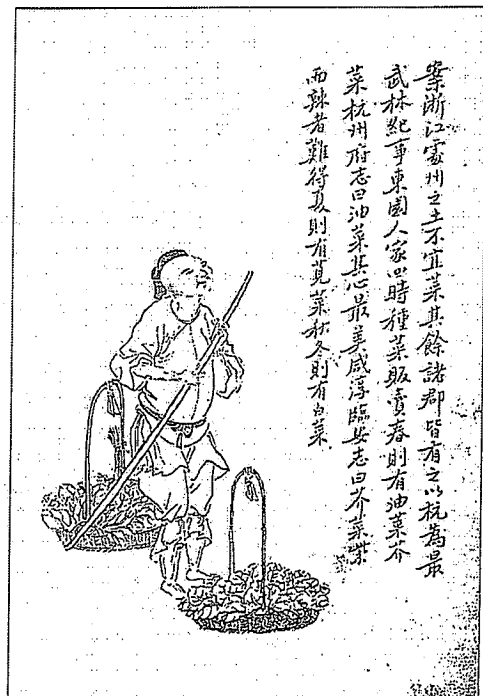 案浙江處州之土不宜菜其餘諸郡皆有之以杭為最
武林紀事東園人家四時種菜販賣春則有油菜芥
菜杭州府志曰油菜其心最美咸淳臨安志曰芥菜紫
而辣者難得夏則有莧菜秋冬則有白菜